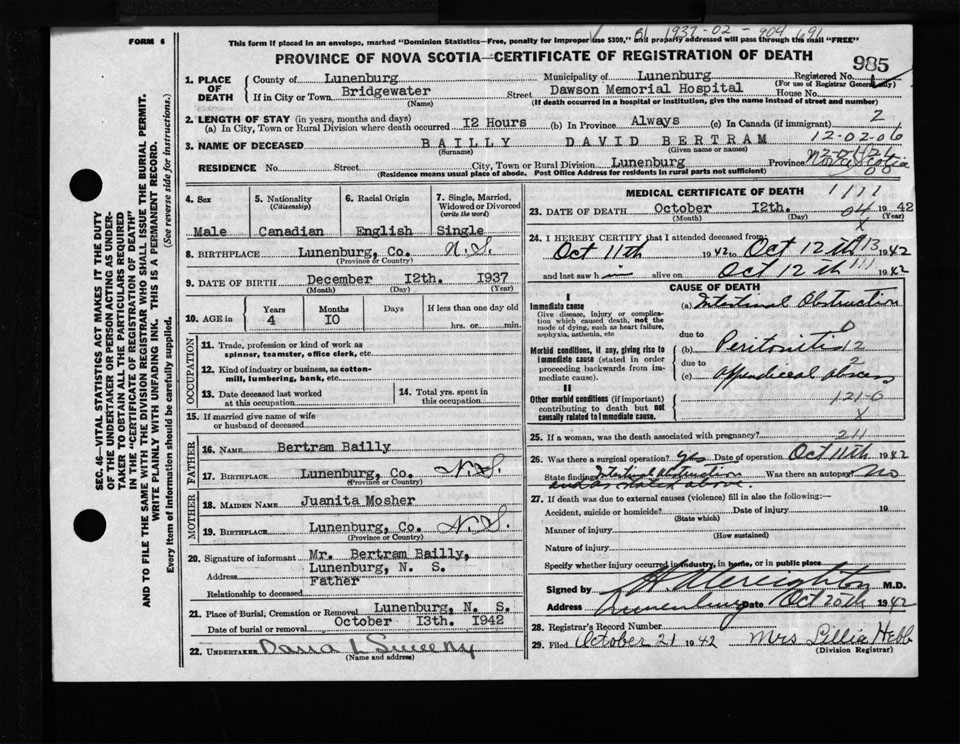 FORM 6
This form if placed in an envelope, marked "Dominion Statistics—Free, penalty for improper use $300," and properly addressed will pass through the mail "FREE"
B1 1937-02-904691
PROVINCE OF NOVA SCOTIA—CERTIFICATE OF REGISTRATION OF DEATH
985
1. PLACE OF DEATH County of Lunenburg Municipality of Lunenburg Registered No.
(For use of Registrar General only)
If in City or Town Bridgewater Street Dawson Memorial Hospital House No.
(Name) (If death occurred in a hospital or institution, give the name instead of street and number)
2. LENGTH OF STAY (in years, months and days)
(a) In City, Town or Rural Division where death occurred 12 Hours (b) In Province Always (c) In Canada (if immigrant) 2
3. NAME OF DECEASED BAILLY DAVID BERTRAM 12-02-06
(Surname) (Given name or names)
RESIDENCE No. Street City, Town or Rural Division Lunenburg Province Nova Scotia
(Residence means usual place of abode. Post Office Address for residents in rural parts not sufficient)
4. Sex Male
5. Nationality (Citizenship) Canadian
6. Racial Origin English
7. Single, Married, Widowed or Divorced (write the word) Single
8. BIRTHPLACE Lunenburg, Co. N.S.
(Province or Country)
9. DATE OF BIRTH December 12th. 1937
(Month) (Day) (Year)
10. AGE in Years 4 Months 10 Days If less than one day old hrs. or min.
OCCUPATION
11. Trade, profession or kind of work as spinner, teamster, office clerk, etc.
12. Kind of industry or business, as cotton-mill, lumbering, bank, etc.
13. Date deceased last worked at this occupation
14. Total yrs. spent in this occupation
15. If married give name of wife or husband of deceased
FATHER
16. NAME Bertram Bailly
17. BIRTHPLACE Lunenburg, Co. N.S.
(Province or Country)
MOTHER
18. MAIDEN NAME Juanita Mosher
19. BIRTHPLACE Lunenburg, Co. N.S.
(Province or Country)
20. Signature of informant Mr. Bertram Bailly,
Address Lunenburg, N. S.
Relationship to deceased Father
21. Place of Burial, Cremation or Removal Lunenburg, N. S.
Date of burial or removal October 13th. 1942
22. UNDERTAKER
(Name and address)
MEDICAL CERTIFICATE OF DEATH
23. DATE OF DEATH October 12th. 1942
(Month) (Day) (Year)
24. I HEREBY CERTIFY that I attended deceased from:
Oct 11th 1942 to Oct 12th 1942
and last saw him alive on Oct 12th 1942
CAUSE OF DEATH
I
Immediate cause
Give disease, injury or complication which caused death, not the mode of dying, such as heart failure, asphyxia, asthenia, etc
(a) Intestinal Obstruction
due to
Morbid conditions, if any, giving rise to immediate cause (stated in order proceeding backwards from immediate cause).
(b) Peritonitis
due to
(c) Appendiceal abscess
II
Other morbid conditions (if important) contributing to death but not causally related to immediate cause.
121-0
X
25. If a woman, was the death associated with pregnancy? 211
26. Was there a surgical operation? yes Date of operation Oct 11th 1942
State findings Intestinal Obstruction Was there an autopsy? No
and as stated above.
27. If death was due to external causes (violence) fill in also the following:
Accident, suicide or homicide? Date of injury 19
(State which)
Manner of injury
(How sustained)
Nature of injury
Specify whether injury occurred in industry, in home, or in public place
Signed by M.D.
Address Lunenburg Date Oct 20th 1942
28. Registrar's Record Number
29. Filed October 21 1942 Mrs Lillia Hebb
(Division Registrar)
SEC. 46—VITAL STATISTICS ACT MAKES IT THE DUTY
OF THE UNDERTAKER OR PERSON ACTING AS UNDER-
TAKER TO OBTAIN ALL THE PARTICULARS REQUIRED
IN THE "CERTIFICATE OF REGISTRATION OF DEATH"
AND TO FILE THE SAME WITH THE DIVISION REGISTRAR WHO SHALL ISSUE THE BURIAL PERMIT.
WRITE PLAINLY WITH UNFADING INK. THIS IS A PERMANENT RECORD.
Every item of information should be carefully supplied. (See reverse side for instructions.)